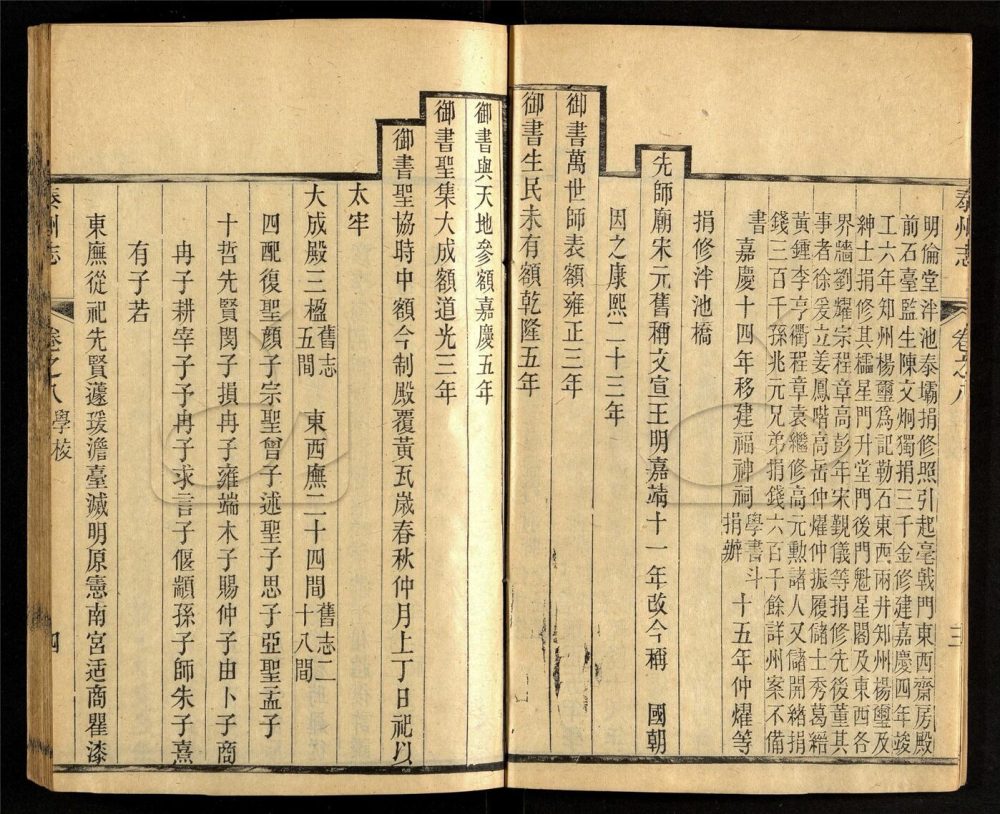 泰州志 卷之八 三
明倫堂泮池泰壩捐修照引起亳戟門東西齋房殿
前石臺監生陳文炯獨捐三千金修建嘉慶四年竣
工六年知州楊璽爲記勒石東西兩井知州楊璽及
紳士捐修其櫺星門升堂門後門魁星閣及東西各
界牆劉耀宗程章高彭年宋覲儀等捐修先後董其
事者徐爰立姜鳳喈高岳仲燿仲振履儲士秀葛縉
黃鍾李亨衢程章袁繼修高元勲諸人又儲開緒捐
錢三百千孫兆元兄弟捐錢六百千餘詳州案不備
書 嘉慶十四年移建福神祠 學書斗捐辦 十五年仲燿等
捐修泮池橋
先師廟宋元舊稱文宣王明嘉靖十一年改今稱 國朝
因之康熙二十三年
御書萬世師表額雍正三年
御書生民未有額乾隆五年
御書與天地參額嘉慶五年
御書聖集大成額道光三年
御書聖協時中額今制殿覆黃瓦歲春秋仲月上丁日祀以
太牢
大成殿三楹 舊志五間 東西廡二十四間 舊志二十八間
四配復聖顏子宗聖曾子述聖子思子亞聖孟子
十哲先賢閔子損冉子雍端木子賜仲子由卜子商
冉子耕宰子予冉子求言子偃顓孫子師朱子熹
有子若
東廡從祀先賢蘧瑗澹臺滅明原憲南宮适商瞿漆
泰州志 卷之八 學校 四